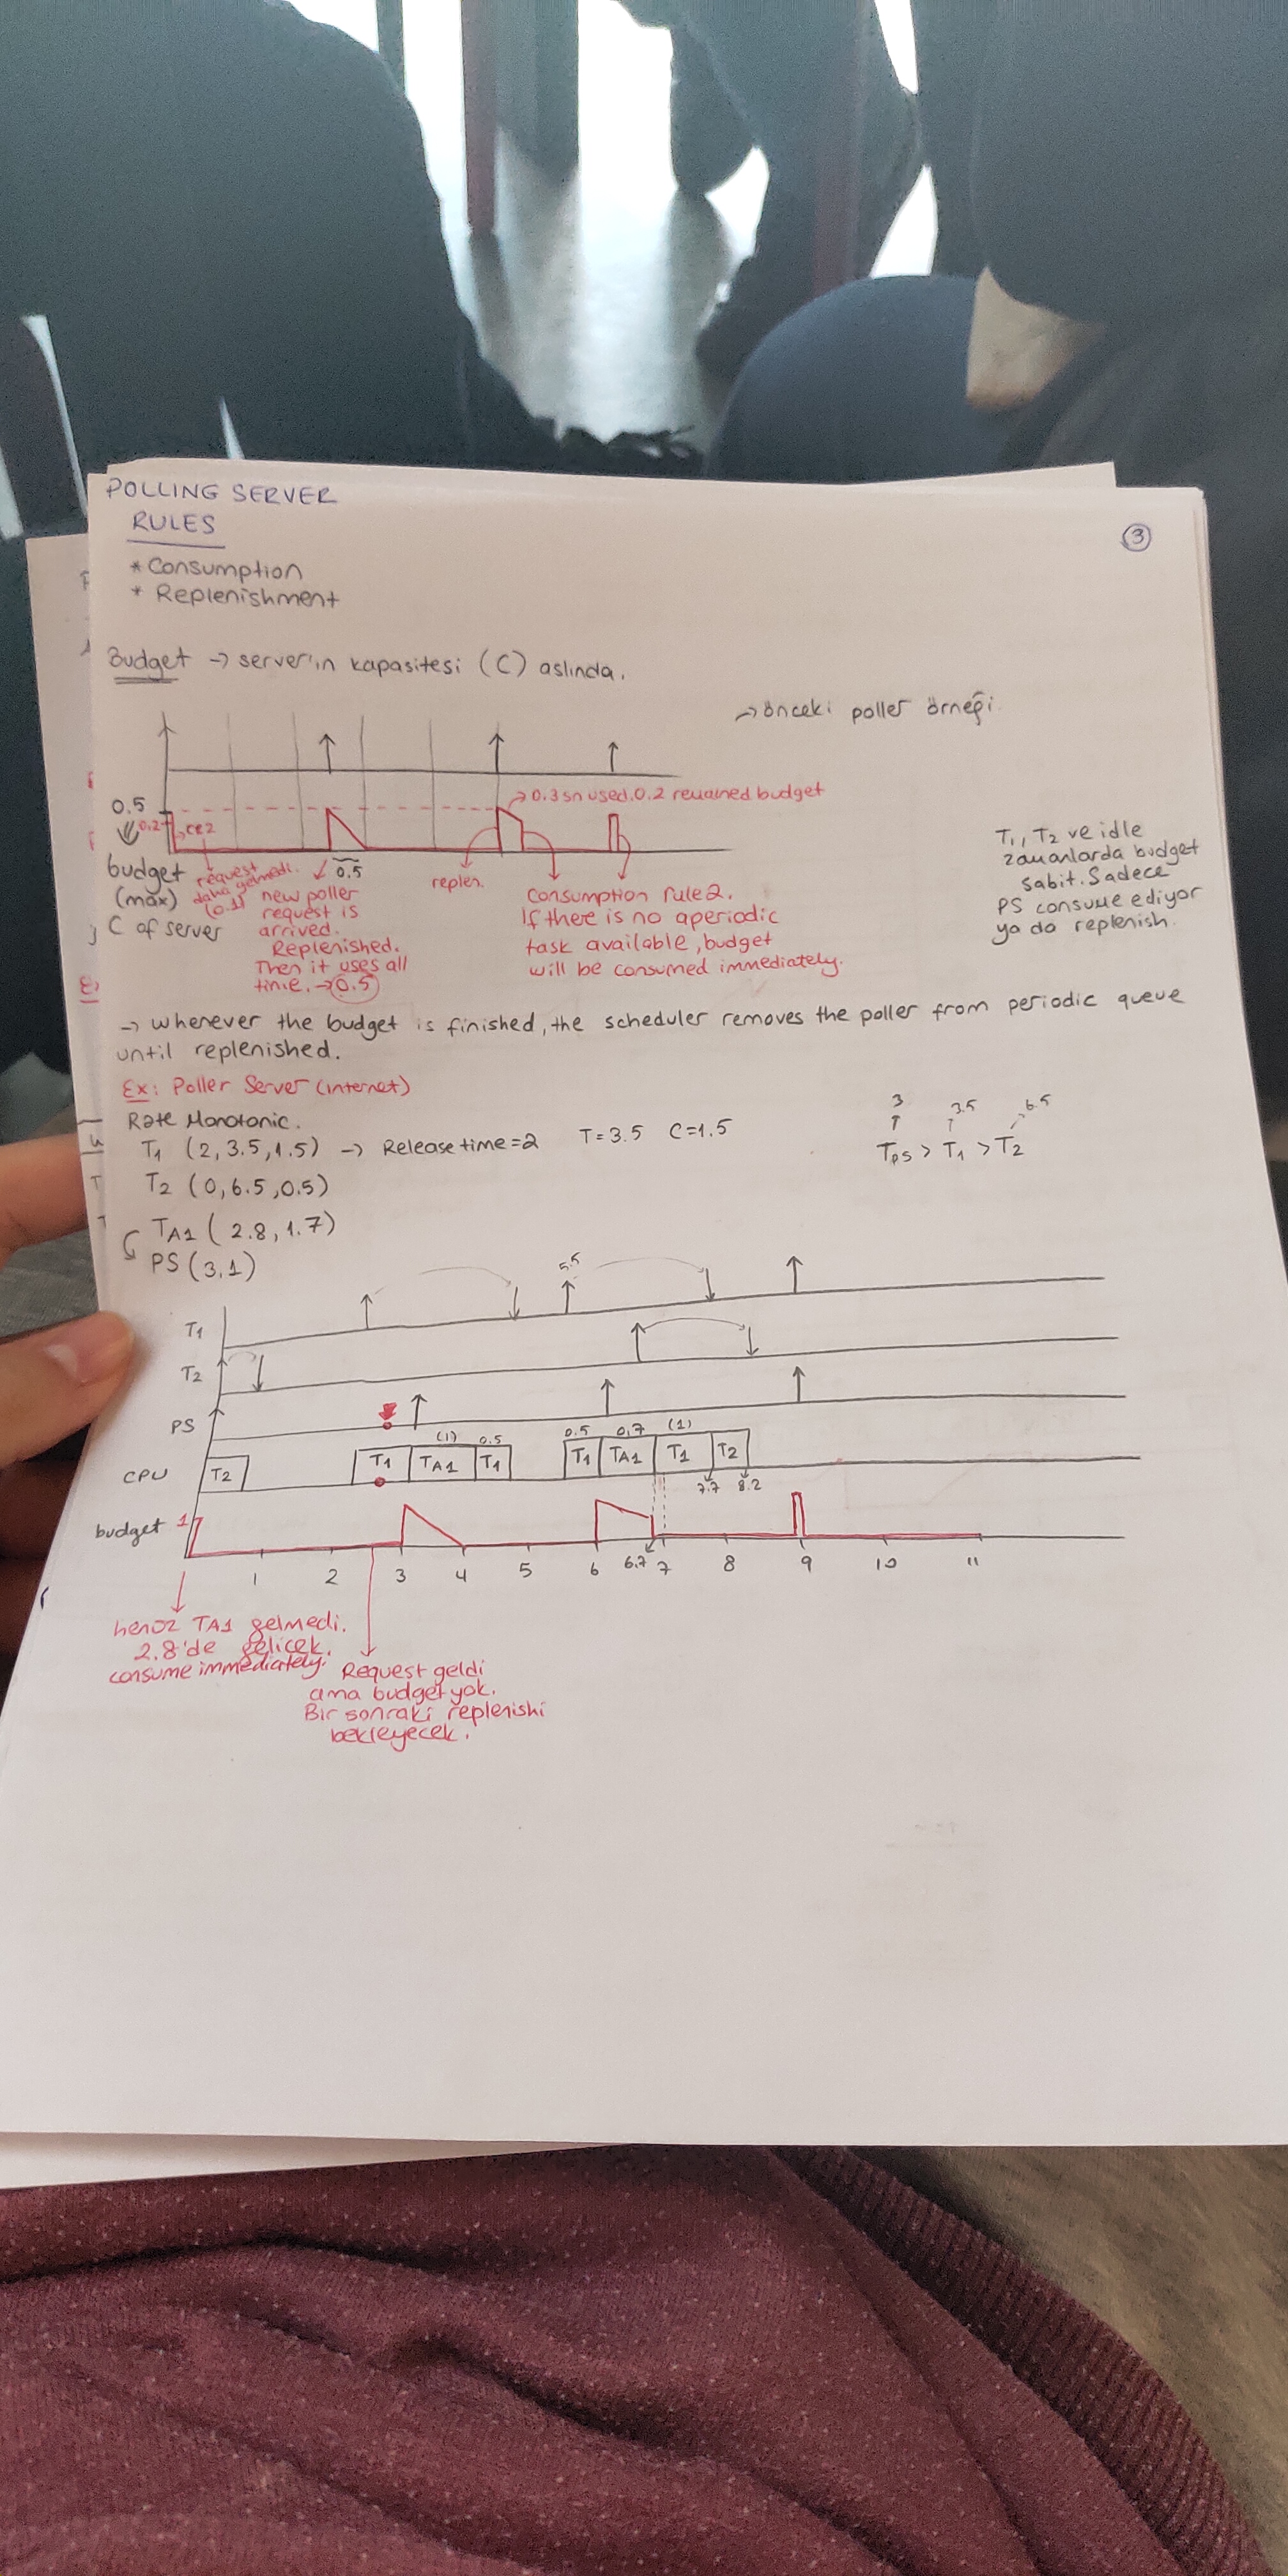 POLLING SERVER
RULES
3
* Consumption
* Replenishment
Budget → server'ın kapasitesi (C) aslında.
→ önceki poller örneği
0.5
0.2
CR2
→ 0.3 sn used, 0.2 remained budget
budget
(max)
C of server
request
daha gelmedi.
(0.1)
0.5
new poller
request is
arrived.
Replenished.
Then it uses all
time. → 0.5
replen.
Consumption rule 2.
If there is no aperiodic
task available, budget
will be consumed immediately.
T1, T2 ve idle
zamanlarda budget
sabit. Sadece
PS consume ediyor
ya da replenish.
→ whenever the budget is finished, the scheduler removes the poller from periodic queue
until replenished.
Ex: Poller Server (internet)
Rate Monotonic.
T1 (2, 3.5, 1.5) → Release time = 2 T = 3.5 C = 1.5
3 3.5 6.5
TPS > T1 > T2
T2 (0, 6.5, 0.5)
TA1 ( 2.8, 1.7)
PS (3,1)
5.5
T1
T2
PS
(1) 0.5 0.5 0.7 (1)
CPU T2 T1 TA1 T1 T1 TA1 T1 T2
7.7 8.2
budget 1
1 2 3 4 5 6 6.7 7 8 9 10 11
henüz TA1 gelmedi.
2.8'de gelicek.
consume immediately.
Request geldi
ama budget yok.
Bir sonraki replenishi
bekleyecek.